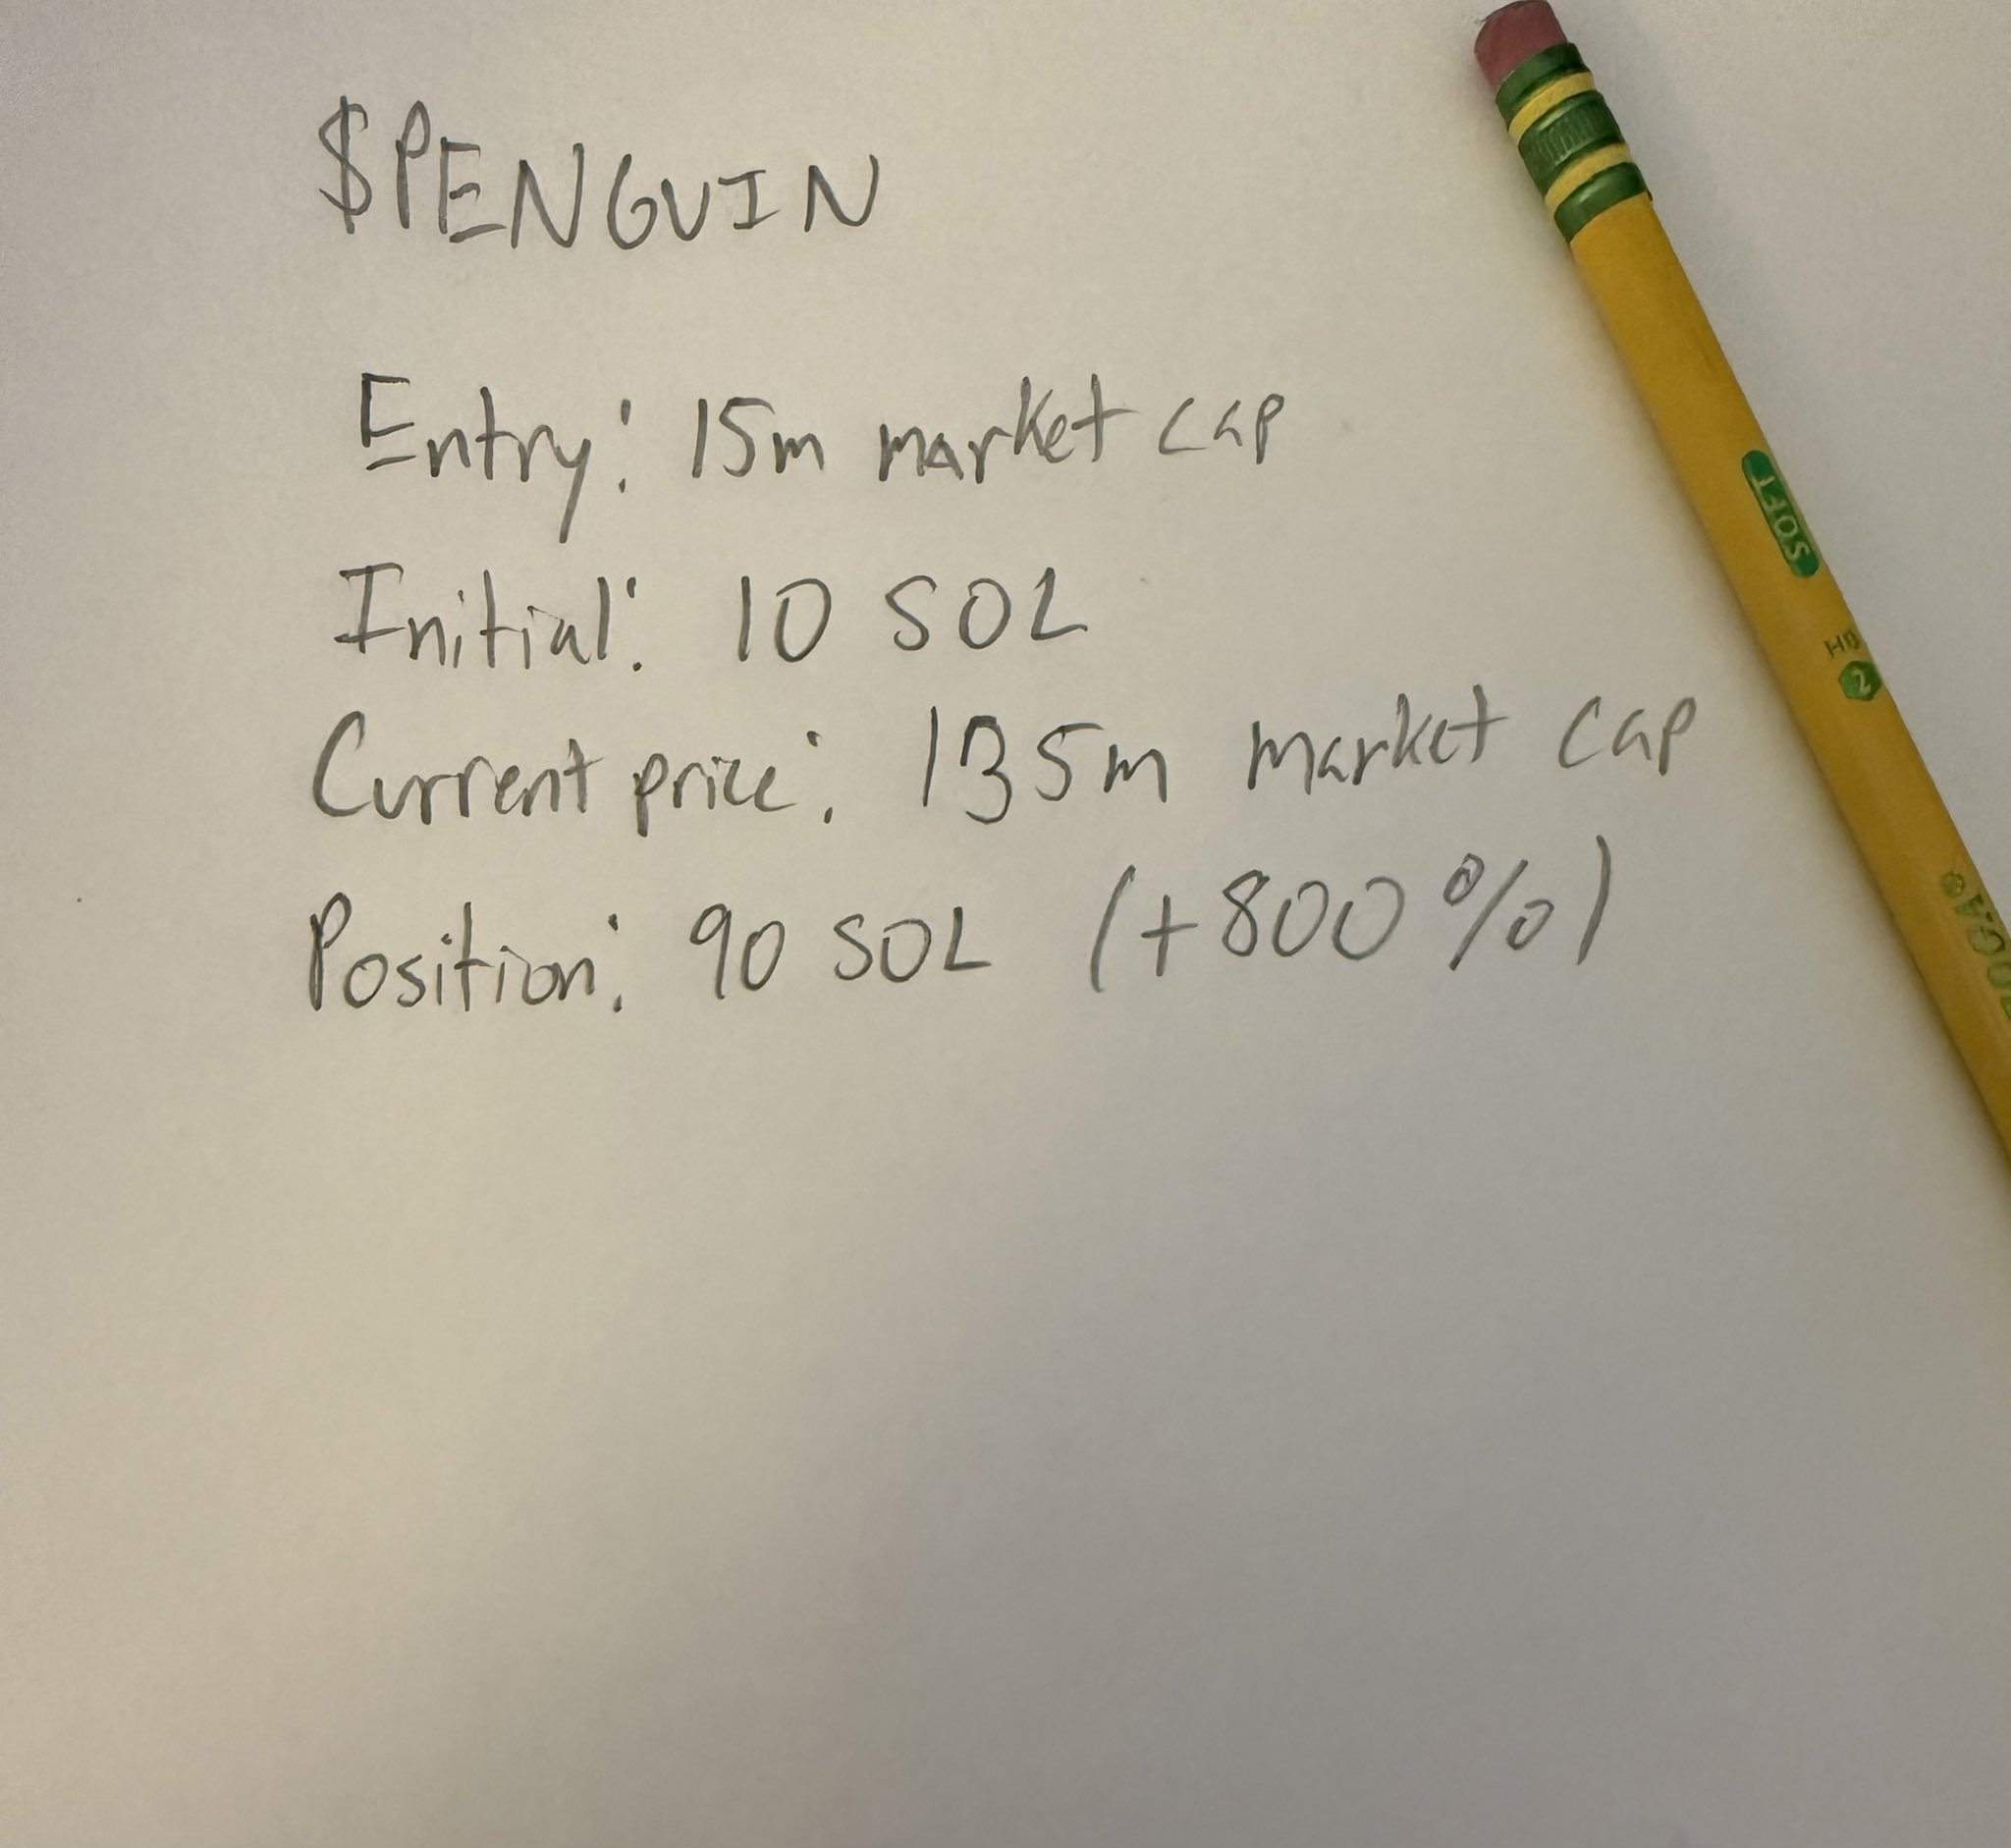 $PENGUIN
Entry: 15m market cap
Initial: 10 SOL
Current price: 135m market cap
Position: 90 SOL (+800%)
SOFT
HB
2